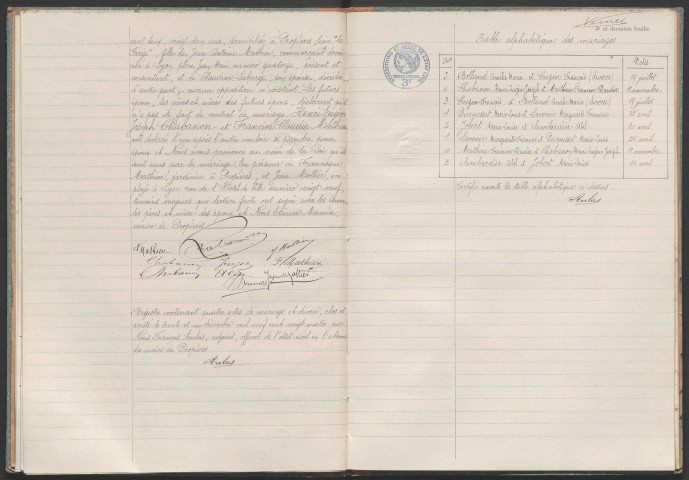 cent deux, vingt deux ans, domiciliée à Propières, lieu "la
Forge", fille de Jean Antoine Mathieu, commerçant domi-
cilié à Lyon, place Jean Macé numéro quatorze, présent et
consentant, et de Claudine Laberge, son épouse, décédée
d'autre part; aucune opposition n'existant. Les futurs
époux, les pères et mère des futurs époux, déclarent qu'il
n'a pas été fait de contrat de mariage. Henri Eugène
Joseph Chabanon et Francine Claudia Mathieu
ont déclaré l'un après l'autre vouloir se prendre pour
époux et Nous avons prononcé au nom de la Loi qu'ils
sont unis par le mariage. En présence de Françisque
Mathieu, jardinier à Propières, et Jean Mollier, em-
ployé à Lyon rue de l'Hôtel de Ville numéro vingt neuf,
témoins majeurs qui lecture faite ont signé avec les époux,
les pères et mère des époux et Nous Etienne
maire de Propières.
Mathieu Chabanon J. Mollier
Chabanon F. Mathieu
Chabanon
Registre contenant quatre actes de mariage et divorce, clos et
arrêté le trente et un décembre mil neuf cent vingt quatre par
Nous François Aulas, adjoint, officier de l'état civil en l'absence
du maire de Propières.
Aulas
et dernier feuillet
Table alphabétique des mariages
Dates
3 Rolland Amélie Marie et Crozon François (divorce) 17 juillet
4 Chabanon Henri Eugène Joseph et Mathieu Francine Claudia 8 novembre
3 Crozon François et Rolland Amélie Marie (divorce) 17 juillet
1 Marie Louis et Marguerite Francine 26 avril
2 Jobert Marie Louise et Lambardier Abel 30 avril
1 Marguerite Francine et Marie Louis 26 avril
4 Mathieu Francine Claudia et Chabanon Henri Eugène Joseph 8 novembre
2 Lambardier Abel et Jobert Marie Louise 30 avril
Certifié exacte la table alphabétique ci-dessus
Aulas